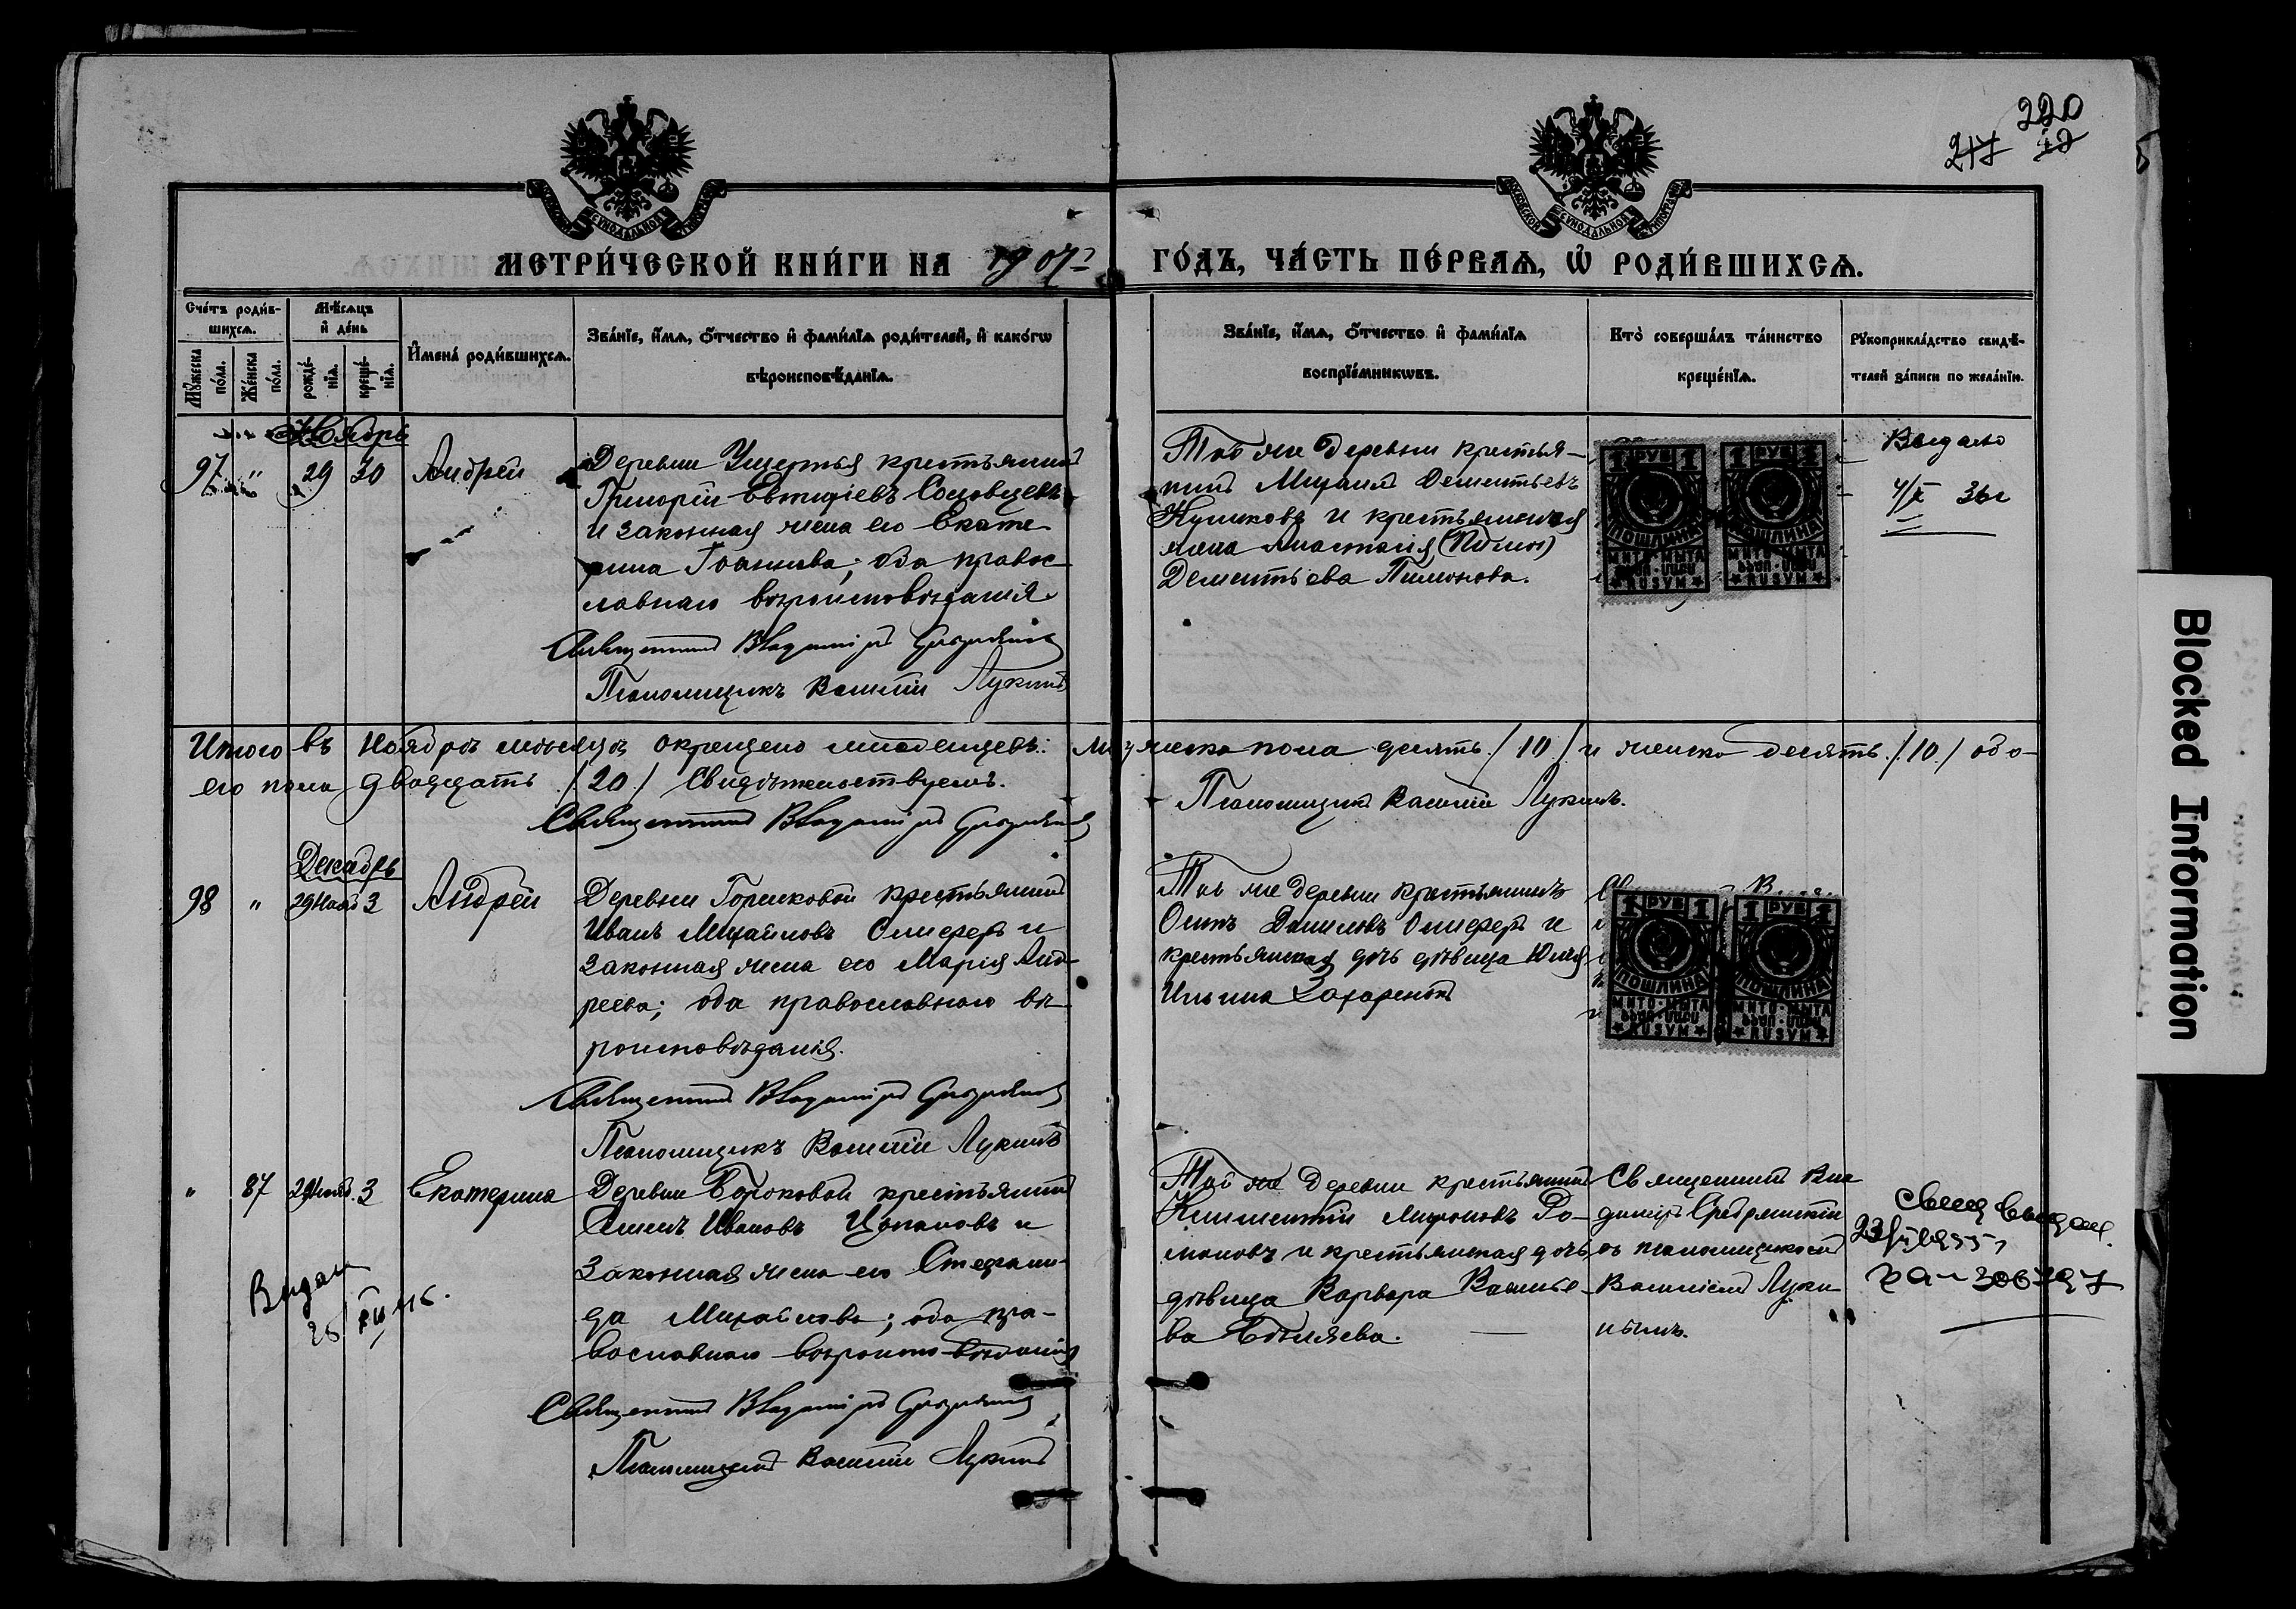 220
217 42
МЕТРИ́ЧЕСКОЙ КНИ́ГИ НА 1907 ГО́ДЪ, ЧА́СТЬ ПЕ́РВАѦ, Ѡ РОДИ́ВШИХСѦ.
Сче́тъ роди́в-
шихсѧ.
Мꙋ́жеска по́ла.
Же́нска по́ла.
Мѣ́сѧцъ
и́ де́нь
рожде́-
нїѧ.
креще́-
нїѧ.
Имена̀ роди́вшихсѧ.
Зва́нїе, и́мѧ, о́тчество и́ фами́лїѧ роди́телей, и́ како́гѡ
вѣроисповѣ́данїѧ.
Зва́нїе, и́мѧ, о́тчество и́ фами́лїѧ
воспрїе́мникѡвъ.
Кто̀ соверша́лъ та́инство
креще́нїѧ.
Рꙋкоприкла́дство свидѣ́-
телей за́писи по жела́нїю.
Ноябрь
97 " 29 30 Андрей
Деревни крестьянинъ
Григорій
и законная жена его Екате-
рина Іоаннова; оба правос-
лавнаго вѣроисповѣданія.
Священникъ Владиміръ
Псаломщикъ Василій Лукинъ
Той же деревни крестья-
нинъ Михаилъ Дементьевъ
и крестьянская
жена Анастасія
Дементьева Пимонова.
1 РУБ 1
ПОШЛИНА
МИТО · МЫТА
RUSYM
1 РУБ 1
ПОШЛИНА
МИТО · МЫТА
RUSYM
Выдано
4/X 36г
Итого въ Ноябрѣ мѣсяцѣ окрещено младенцевъ: мужеска пола десять /10/ и женска десять /10/ обо-
его пола двадцать /20/ Свидѣтельствуемъ.
Священникъ Владиміръ
Псаломщикъ Василій Лукинъ.
Декабрь
98 " 29 Нояб 3 Андрей
Деревни Горшковой крестьянинъ
Иванъ Михайловъ Олиферъ и
законная жена его Марія Анд-
реева; оба православнаго вѣ-
роисповѣданія.
Священникъ Владиміръ
Псаломщикъ Василій Лукинъ
Той же деревни крестьянинъ
Осипъ Даниловъ Олиферъ и
крестьянская дочь дѣвица Юлія
Ильина Захаренокъ
1 РУБ 1
ПОШЛИНА
МИТО · МЫТА
RUSYM
1 РУБ 1
ПОШЛИНА
МИТО · МЫТА
RUSYM
" 87 29 Нояб. 3 Екатерина
Деревни крестьянинъ
Ивановъ и
законная жена его Стефани-
да Михайлова; оба пра-
вославнаго вѣроисповѣданія
Священникъ Владиміръ
Псаломщикъ Василій Лукинъ
Той же деревни крестьянинъ
Климентій Мироновъ Ро-
мановъ и крестьянская дочь
дѣвица Варвара Василье-
ва Бѣляева.
Священникъ Вла-
диміръ
съ псаломщикомъ
Василіемъ Луки-
нымъ.
Выдан
25
23
Blocked Information